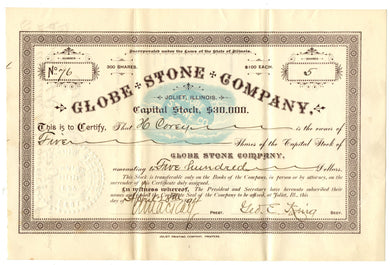 Incorporated under the Laws of the State of Illinois.
NUMBER
300 SHARES.
$100 EACH.
SHARES
No 76
5
GLOBE STONE COMPANY,
JOLIET, ILLINOIS.
Capital Stock, $30,000.
This is to Certify, That H Corey is the owner of
Five Shares of the Capital Stock of
GLOBE STONE COMPANY,
amounting to Five hundred Dollars.
This Stock is transferable only on the Books of the Company, in person or by attorney, on the
surrender of this Certificate duly assigned.
In witness whereof, The President and Secretary have hereunto subscribed their
names and caused the Seal of said Company to be affixed, at Joliet, Ill., this
day of
PREST.
Geo. E. King SECY.
JOLIET PRINTING COMPANY, PRINTERS